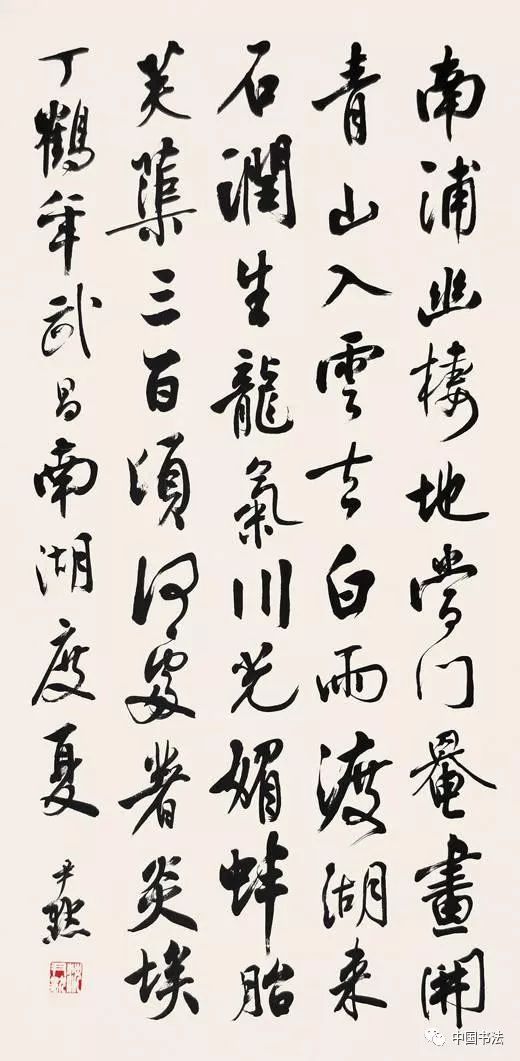 南浦幽棲地當門罨畫開
青山入雲去白雨渡湖来
石潤生龍氣川光媚蚌胎
芙蕖三百頃何處著炎埃
丁鶴年武昌南湖度夏 尹默
中国书法